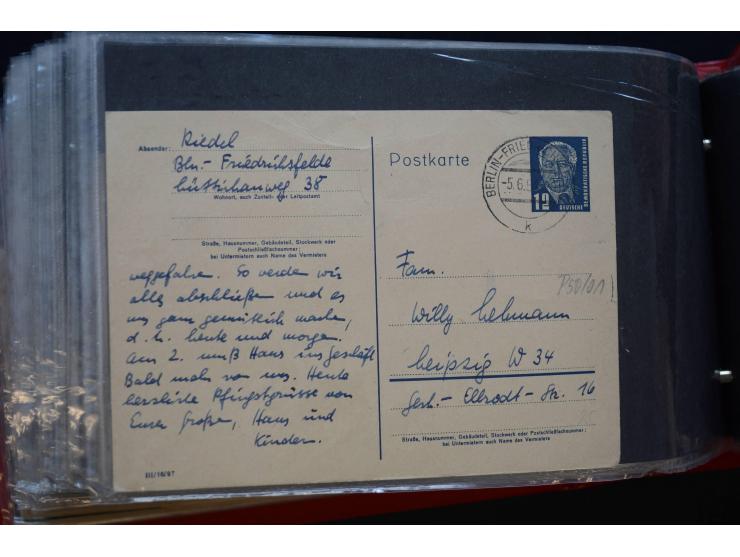 Absender: Riedel
Bln.- Friedrichsfelde
38
Wohnort, auch Zustell- oder Leitpostamt
Straße, Hausnummer, Gebäudeteil, Stockwerk oder
Postschließfachnummer;
bei Untermietern auch Name des Vermieters
weggefahren. So werden wir
alles abschließen und es
uns ganz gemütlich machen,
d. h. heute und morgen.
Am 2. muß Hans ins Geschäft
Bald mehr von uns. Heute
herzliche Pfingstgrüsse von
Eurer Große, Hans und
Kinder.
III/18/97
Postkarte
BERLIN-FRIE
-5.6.5
k
12
DEUTSCHE
DEMOKRATISCHE REPUBLIK
Fam.
P50/01
Willy Lehmann
Leipzig W 34
Gesch.- Ellrodt- Str. 16
Straße, Hausnummer, Gebäudeteil, Stockwerk oder Postschließfachnummer;
bei Untermietern auch Name des Vermieters